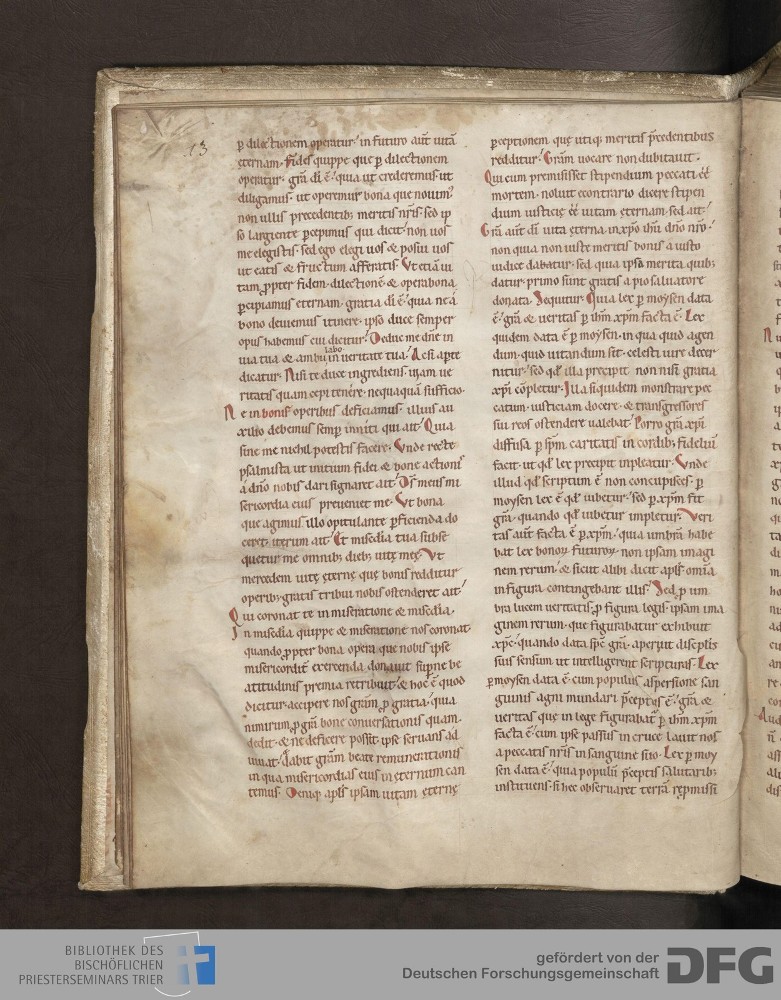 13
p dilectionem operatur. in futuro aut uitā
ęternam. Fides quippe quę p dilectionem
operatur. grā dī ē. quia ut crederemus. ut
diligamus. ut operemur bona que nouim;
non ullis precedentib; meritis nr̄is. sed ip
so largiente pcepimus qui dicit. non uos
me elegistis. sed ego elegi uos & posui uos
ut eatis & fructum afferatis. Vt etiā ui
tam ppter fidem. dilectionē & opera bona
pcipiamus eternam. gratia dī ē. quia ne á
bono deuiemus itinere. ipso duce semper
opus habemus cui dicitur. Deduc me dn̄e in
uia tua & ambulabo in ueritate tua. Ac si apte
dicatur. Nisi te duce ingrediens. uiam ue
ritatis quam cepi tenere. nequaquā sufficio.
Ne in bonis operibus deficiamus. illius au
xilio debemus semp inniti qui ait. Quia
sine me nichil potestis facere. Vnde recte
psalmista ut initium fidei & bone actionis
á dn̄o nobis dari signaret ait. Ds̄ meus mi
sericordia eius preueniet me. Vt bona
que agimus illo opitulante pficienda do
ceret. iterum ait. Et miscdia tua subse
quetur me omnib; dieb; uitę meę. Vt
mercedem uitę ęternę quę bonis redditur
operib; gratis tribui nobis ostenderet ait.
Qui coronat te in miseratione & miscdia.
In miscdia quippe & miseratione nos coronat.
quando ppter bona opera que nobis ipse
misericordit exercenda donauit supne be
atitudinis premia retribuit. & hoc ē quod
dicitur. accipere nos grām p gratia. quia
nimirum p grā bone conuersationis quam
dedit. & ne deficere possit ipse seruans ad
iuuat. dabit grām beate remunerationis
in qua misericordias eius in ęternum can
temus. Deniq; apls ipsam uitam ęternę
pceptionem. quę utiq; meritis p̄cedentibus
redditur. Grām uocare non dubitauit.
Qui cum premisisset stipendium peccati eē
mortem. noluit econtrario dicere stipen
dium iusticię eē uitam ęternam. sed ait.
Grā aut dī uita ęterna. in xpo ihu dn̄o nr̄o.
non quia non iuste meritis bonis a iusto
iudice dabatur. sed quia ipsa merita quib;
datur. primo sunt gratis a pio saluatore
donata. Sequitur. Quia lex p moysen data
ē. grā & ueritas p ihm xpm facta ē. Lex
quidem data ē p moysen. in qua quid agen
dum. quid uitandum sit. celesti iure decer
nitur. sed qd illa precipit. non nisi gratia
xpi cōpletur. Illa siquidem monstrare pec
catum. iusticiam docere. & transgressores
sui reos ostendere ualebat. Porro grā xpi
diffusa p spm caritatis in cordib; fideliū
facit. ut qd lex precipit impleatur. Vnde
illud qd scriptum ē non concupisces. p
moysen lex ē qd iubetur. sed p xpm fit
grā. quando qd iubetur impletur. Veri
tas aut facta ē p xpm. quia umbrā habe
bat lex bonorum futurorum. non ipsam imagi
nem rerum. & sicut alibi dicit apls. omīa
in figura contingebant illis. Sed p um
bra lucem ueritatis. p figura legis. ipsam ima
ginem rerum. que figurabatur exhibuit
xpc. quando data spc grā. aperuit disciplis
suis sensum ut intelligerent scripturas. Lex
p moysen data ē. cum populus aspersione san
guinis agni mundari p̄ceptus ē. grā &
ueritas quę in lege figurabat p ihm xpm
facta ē. cum ipse passus in cruce lauit nos
a peccatis nr̄is in sanguine suo. Lex p moy
sen data ē. quia populū p̄ceptis salutarib;
instituens. si hec obseruaret terrā repmissi
BIBLIOTHEK DES
BISCHÖFLICHEN
PRIESTERSEMINARS TRIER
gefördert von der
Deutschen Forschungsgemeinschaft
DFG